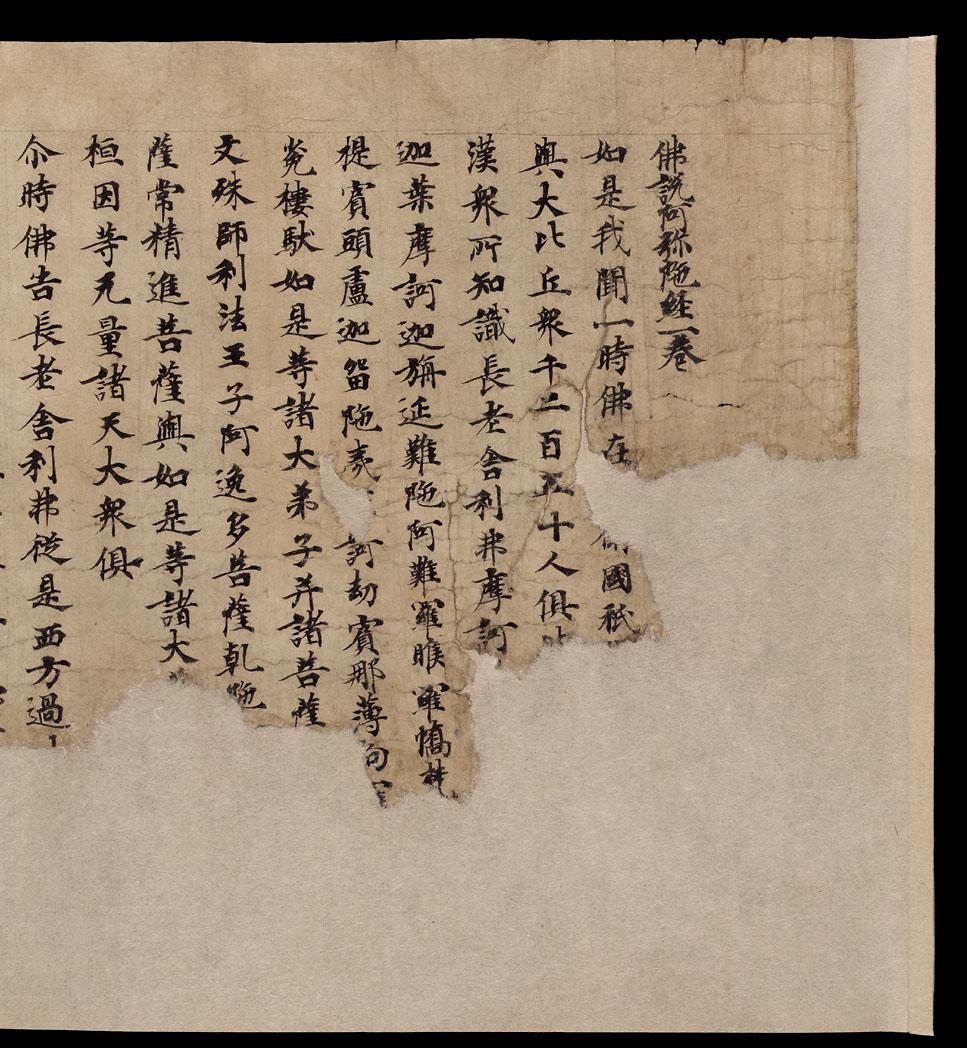 佛說阿弥陁経一卷
如是我聞一時佛在衛國祇
與大比丘衆千二百五十人俱
漢衆所知識長老舍利弗摩訶
迦葉摩訶迦旃延難陁阿難羅睺羅憍
提賓頭盧迦留陁夷訶劫賓那薄拘
㝹樓馱如是等諸大弟子并諸菩薩
文殊師利法王子阿逸多菩薩乾陁
薩常精進菩薩與如是等諸大
桓因等无量諸天大衆俱
尒時佛告長老舍利弗從是西方過